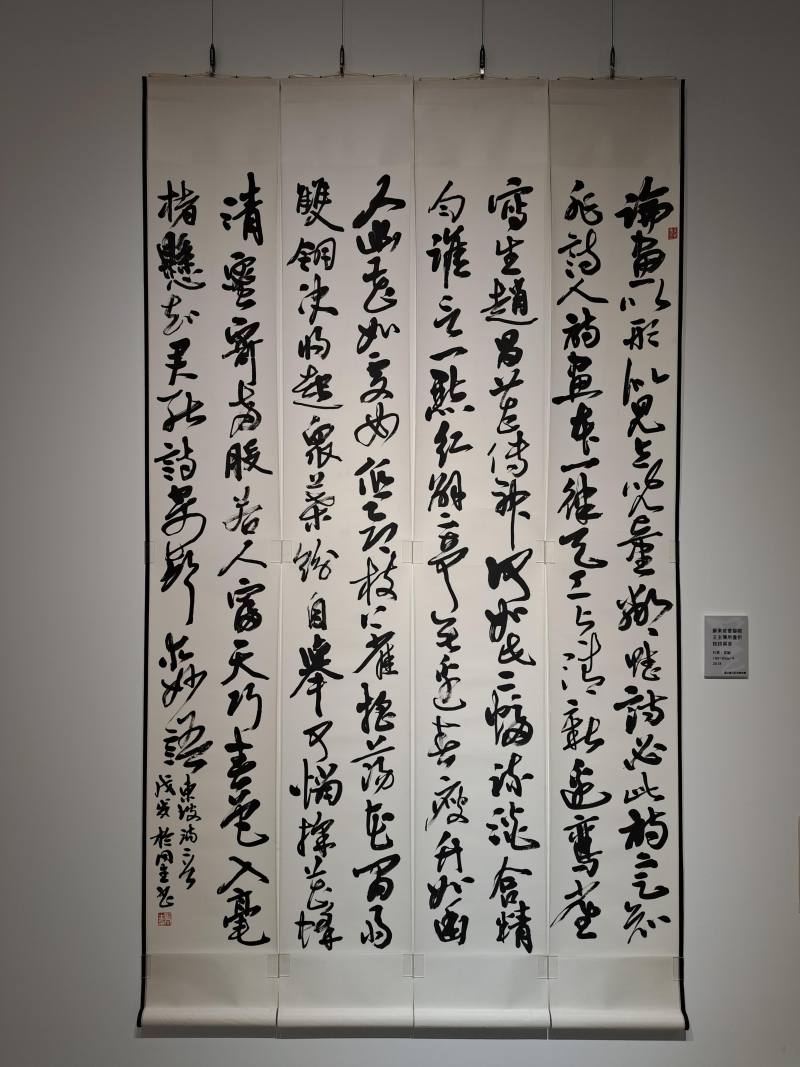 論畫以形似見与兒童鄰賦詩必此詩定知
非詩人詩畫本一律天工与清新邊鸞雀
寫生趙昌花傳神何如此二幅疏澹含精
勻誰言一點紅解寄無邊春瘦竹如幽
人幽花如處女低昂枝上雀搖蕩花間雨
雙翎決將起眾葉紛自舉可憐採花蜂
清蜜寄兩股若人富天巧春色入毫
楮懸知君能詩寄聲求妙語
東坡詩二首
戊戌於
蘇東坡書鄢陵
王主簿所畫折
2018